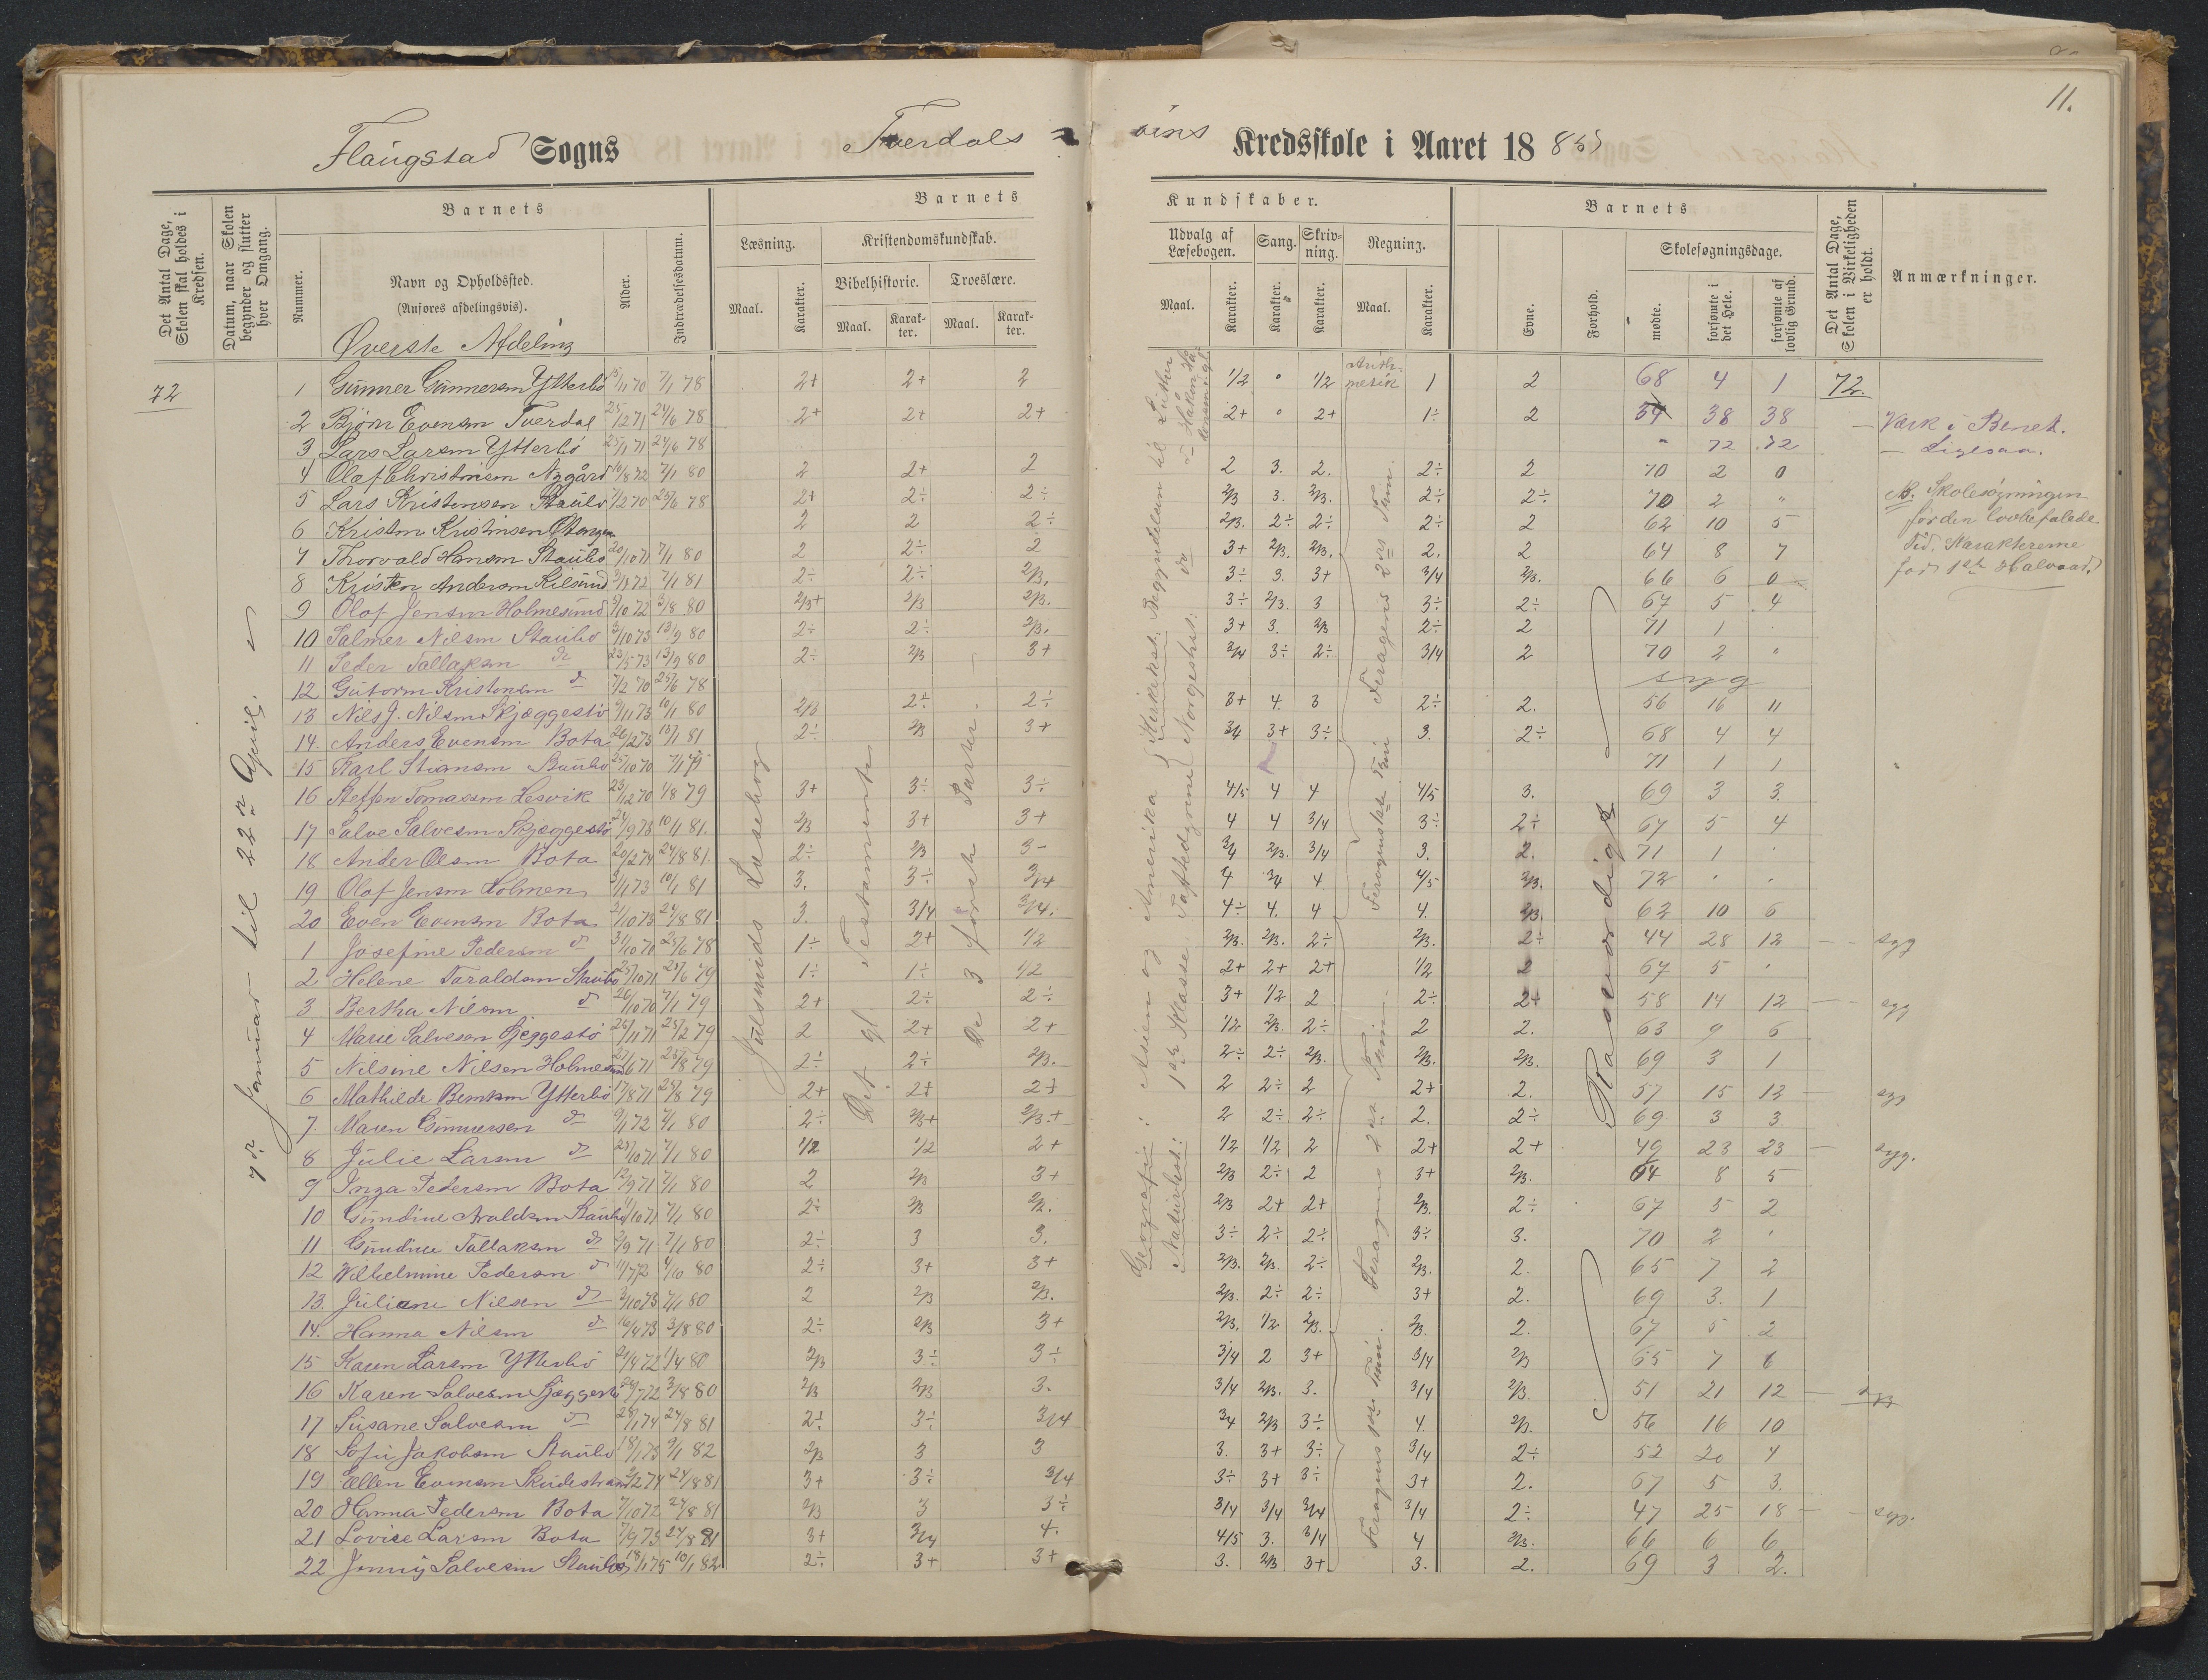 11.
Flaugstad Sogns Tverdals = øens Kredsskole i Aaret 1885
Det Antal Dage, Skolen skal holdes i Kredsen.
Datum, naar Skolen begynder og slutter hver Omgang.
Barnets
Nummer.
Navn og Opholdssted.
(Anføres afdelingsvis).
Alder.
Indtrædelsesdatum.
Barnets Kundskaber.
Læsning.
Maal. Karakter.
Kristendomskundskab.
Bibelhistorie. Troeslære.
Maal. Karakter. Maal. Karakter.
Udvalg af Læsebogen.
Maal. Karakter.
Sang. Karakter.
Skrivning. Karakter.
Regning.
Maal. Karakter.
Barnets
Evne. Forhold.
Skolesøgningsdage.
mødte. forsømte i det Hele. forsømte af lovlig Grund.
Det Antal Dage, Skolen i Virkeligheden er holdt.
Anmærkninger.
Øverste Afdeling
72
7de Januar til 22de April.
Julsruds Læsebog
Det gl. Testamente
De 3 første Parter.
Geografi: Asien og Amerika
Kirkehist: Begyndelsen til Luther
Naturhist: 1ste Klasse
Norgeshist:
Arithmetik
Rosværdigt
1 Gunner Gunnersen Ytterbø 15/11 70 7/1 78 2+ 2+ 2 1/2 " 1/2 1 2 68 4 1 72.
2 Bjørn Evensen Tverdal 25/12 71 24/6 78 2+ 2+ 2+ 2+ " 2+ 1÷ 2 34 38 38 — Værk i Benet.
3 Lars Larsen Ytterbø 25/1 71 24/6 78 " 72 72 — Ligesaa.
4 Olaf Christensen Nygård 10/8 72 7/1 80 2 2+ 2 2 3. 2. 2÷ 2 70 2 0
5 Lars Kristensen Staubø 7/2 70 25/6 78 2+ 2÷ 2÷ 2/3 3. 2/3. 2÷ 2÷ 70 2 "
NB. Skolesøgningen
6 Kristen Kristensen 2 2 2÷ 2/3. 2÷ 2÷ 2÷ 2 62 10 5
for den lovbefalede
7 Thorvald Hansen Staubø 20/10 71 7/1 80 2 2÷ 2 3+ 2/3. 2/3. 2. 2 64 8 7
Tid. Karaktererne
8 Kristen Andersen Kilsund 3/1 72 7/1 81 2÷ 2÷ 2/3. 3÷ 3. 3+ 3/4 2/3. 66 6 0
for 1ste Halvaar.
9 Olaf Jensen Holmesund 3/10 72 3/8 80 2/3+ 2/3 2/3. 3÷ 2/3. 3 3÷ 2÷ 67 5 4
10 Salmer Nilsen Staubø 3/10 73 13/9 80 2÷ 2÷ 2/3. 3+ 3. 2/3 2÷ 2 71 1
11 Peder Tallaksen do 23/5 73 13/9 80 2÷ 2/3 3+ 3/4 3÷ 2÷ 3/4 2 70 2 "
12 Gutorm Kristensen do 7/2 70 25/6 78 syg
13 Nils J. Nilsen Skjæggestø 9/11 73 10/1 80 2/3 2÷ 2÷ 3+ 4. 3 2÷ 2. 56 16 11
14. Anders Evensen Bota 26/2 73 13/1 81 2÷ 2/3 3+ 3/4 3+ 3÷ 3. 2÷ 68 4 4
15 Karl Stiansen Staubø 25/10 70 71 1 1
16 Steffen Tomassen Lesvik 23/12 70 1/8 79 3+ 3÷ 3÷ 4/5 4 4 4/5 3. 69 3 3.
17 Salve Salvesen Skjæggestø 24/9 73 10/1 81. 2/3 3+ 3+ 4 4 3/4 3÷ 2÷ 67 5 4
18 Ander Olsen Bota 20/2 74 24/8 81. 2÷ 2/3 3- 3/4 2/3. 3/4 3. 2. 71 1
19 Olaf Jensen Holmen 3/1 73 10/1 81 3. 3÷ 3/4 4 3/4 4 4/5 2/3. 72
20 Even Evensen Bota 21/10 73 24/8 81 3. 3/4 3/4. 4÷ 4. 4 4. 2/3. 62 10 6
1 Josefine Pedersen do 31/10 70 25/6 78 1÷ 2+ 1/2 2/3. 2/3. 2÷ 2/3. 2÷ 44 28 12 — syg
2 Helene Taraldsen Staubø 25/10 71 25/6 79 1÷ 1÷ 1/2 2+ 2+ 2+ 1/2 2 67 5
3 Bertha Nilsen do 20/10 70 7/1 79 2+ 2÷ 2÷ 3+ 1/2 2 2÷ 2+ 58 14 12 — syg
4 Marie Salvesen Sjeggestø 26/11 71 25/2 79 2 2+ 2+ 1/2. 2/3. 2÷ 2 2. 63 9 6
5 Nilsine Nilsen Holmesund 27/6 71 25/8 79 2÷ 2÷ 2/3. 2÷ 2÷ 2/3. 2/3. 2/3. 69 3 1
6 Mathilde Berntsen Ytterbø 17/8 71 25/8 79 2+ 2+ 2+ 2 2÷ 2 2+ 2. 57 15 12 — syg
7 Maren Gunnersen do 9/1 72 7/1 80 2÷ 2/3+ 2/3.+ 2 2÷ 2÷ 2. 2÷ 69 3 3.
8 Julie Larsen do 23/10 71 7/1 80 1/2 1/2 2+ 1/2 1/2 2 2+ 2+ 49 23 23 — syg.
9 Inga Pedersen Bota 12/9 71 7/1 80 2 2/3 3+ 2/3 2÷ 2 3+ 2/3. 64 8 5
10 Gundine Araldsen Staubø 11/10 71 7/1 80 2÷ 2/3 2/3. 2/3 2+ 2+ 2/3. 2÷ 67 5 2
11 Gundine Tallaksen do 2/9 71 7/1 80 2÷ 3 3. 3÷ 2÷ 2÷ 3÷ 3. 70 2
12 Wilhelmine Pedersen do 11/7 72 4/10 80 2÷ 3+ 3+ 2/3. 2/3. 2÷ 2/3. 2. 65 7 2
13. Juliane Nilsen do 2/10 73 7/1 80 2 2/3 2/3. 2/3. 2÷ 2÷ 3+ 2. 69 3. 1
14. Hanna Nilsen do 16/4 73 3/8 80 2÷ 2/3 3+ 2/3. 1/2 2/3. 2/3. 2. 67 5 2
15 Karen Larsen Ytterbø 21/4 72 1/4 80 2/3 3÷ 3÷ 3/4 2 3+ 3/4 2/3 65 7 6
16 Karen Salvesen Sjæggestø 24/7 72 3/8 80 2/3 2/3 3. 3/4 2/3. 3. 3/4 2/3. 51 21 12 — syg
17 Susane Salvesen do 28/1 74 24/8 81 2÷ 3÷ 3/4 3/4 2/3 3÷ 4. 2/3. 56 16 10
18 Sofie Jakobsen Staubø 18/1 73 9/1 82 2/3 3 3 3. 3+ 3÷ 3/4 2÷ 52 20 4
19 Ellen Evensen Skudestrand 2/2 74 24/8 81 3+ 3÷ 3/4 3÷ 3+ 3÷ 3+ 2. 67 5 3.
20 Hanna Pedersen Bota 7/10 72 24/8 81 2/3 3 3÷ 3/4 3/4 3/4 3/4 2÷ 47 25 18 — syg.
21 Lovise Larsen Bota 7/9 73 24/8 81 3+ 3/4 4. 4/5 3. 3/4 4 2/3. 66 6 6
22 Jenny Salvesen Staubø 18/1 75 10/1 82 2÷ 3+ 3+ 3. 2/3 3+ 3. 2. 69 3 2.